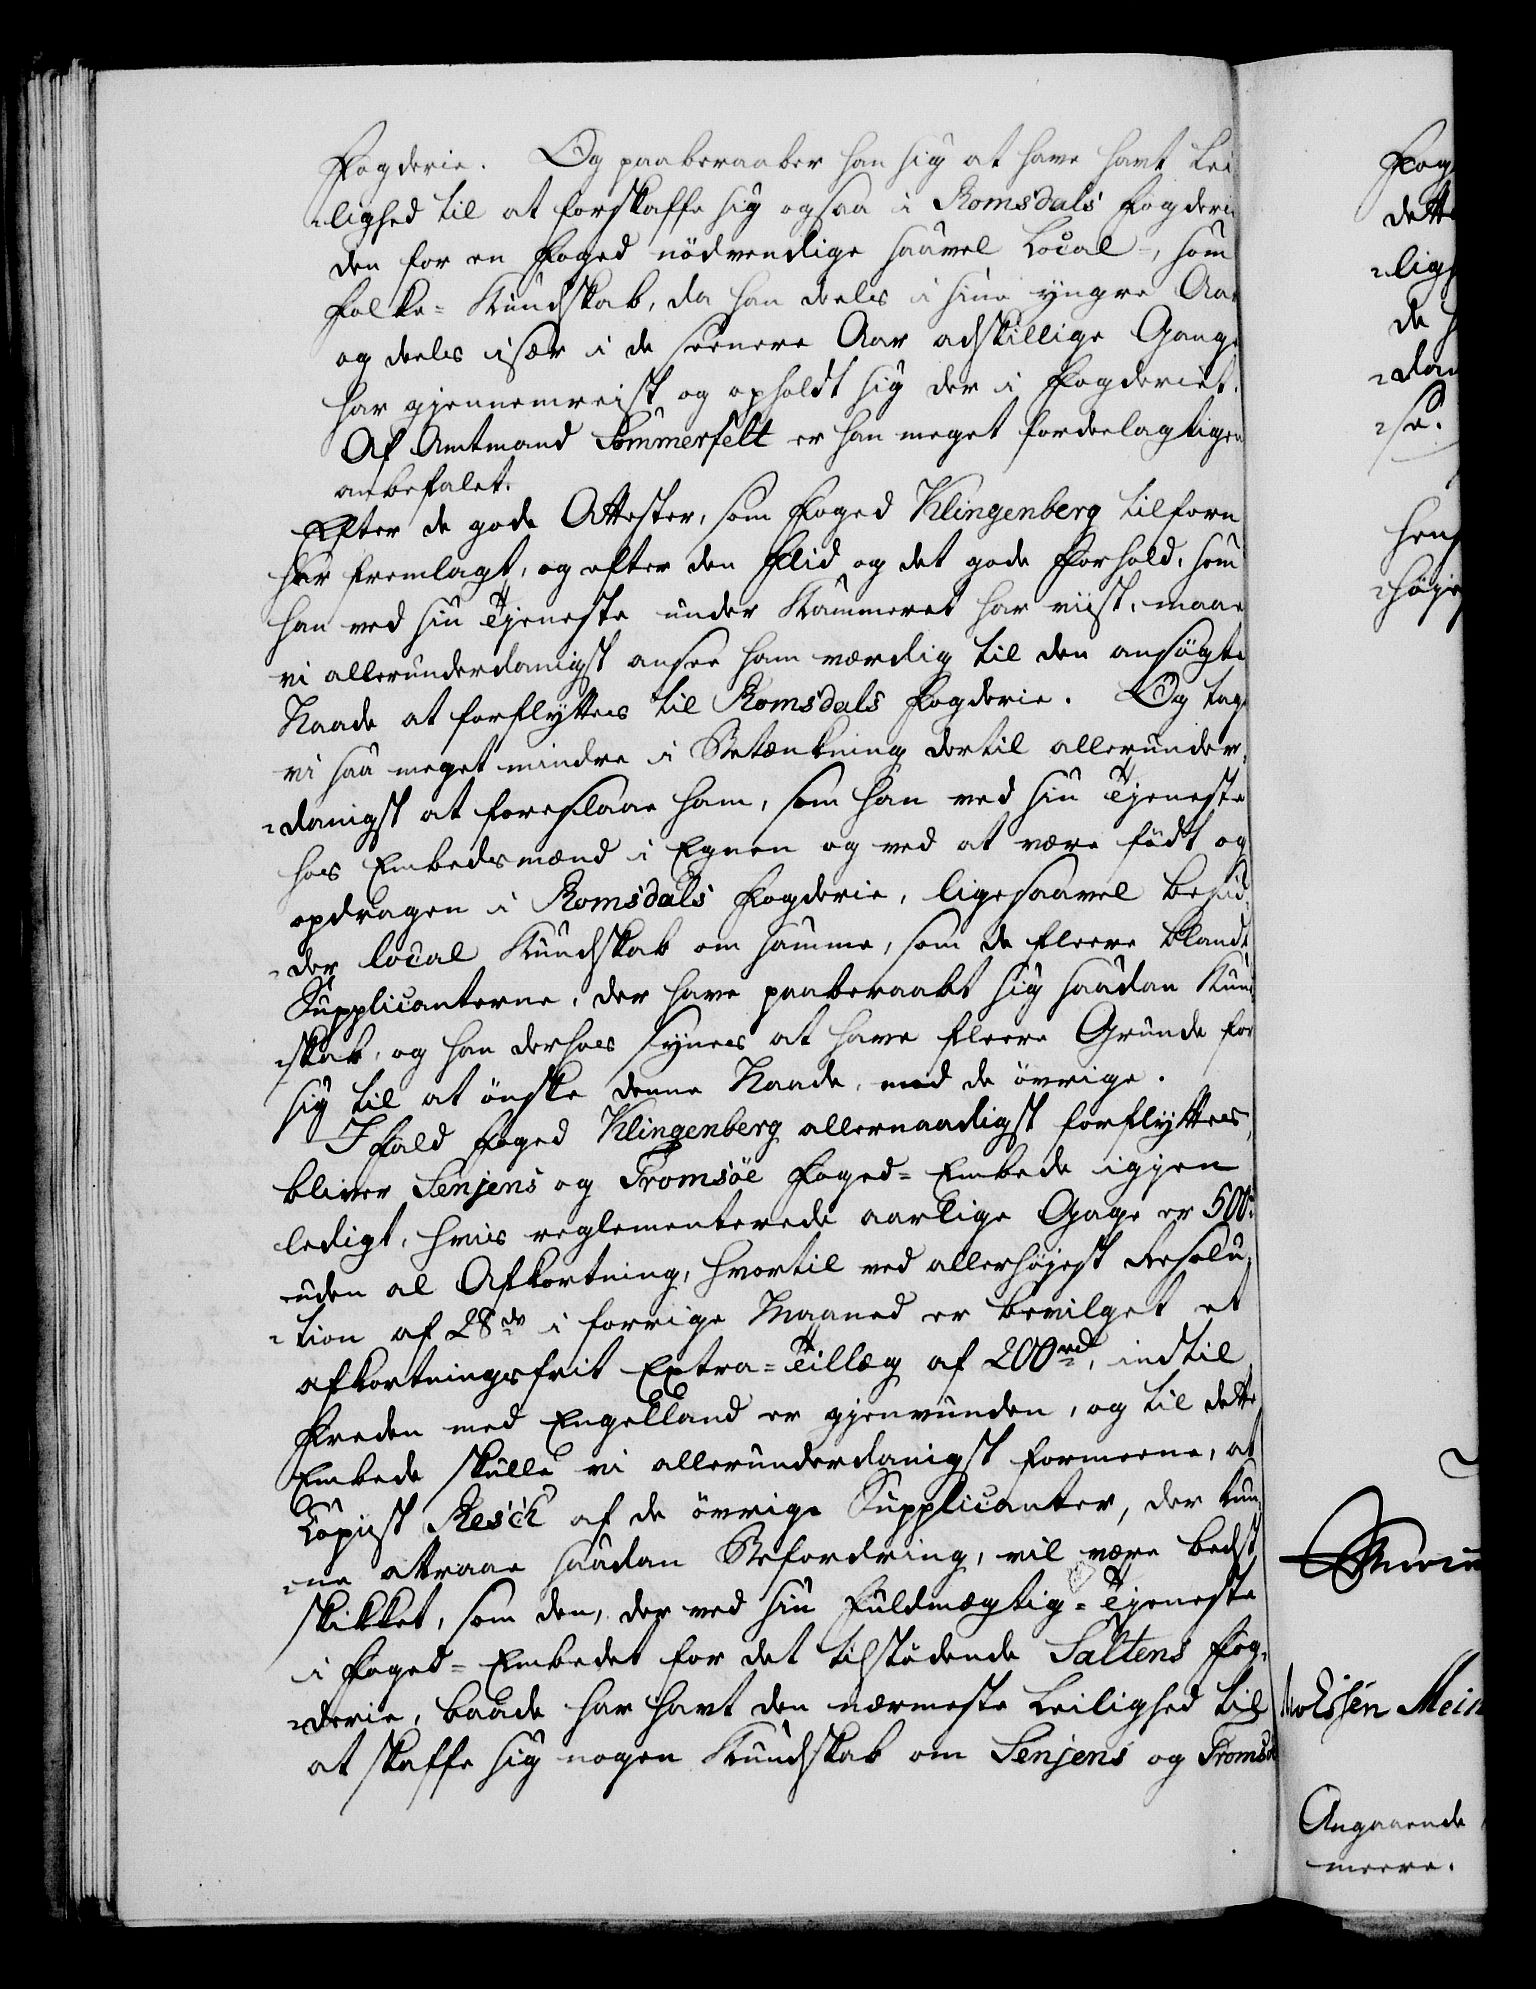 Fogderie. Og paaberaaber han sig at have havt Lei
-lighed til at forskaffe sig ogsaa i Romsdals Fogderi
den for en Foged nödvendige saavel Local-, som
Folke-Kundskab, da han deels i sine yngre Aar
og deels især i de seenere Aar adskillige Gange
har gjennemreist og opholdt sig der i Fogderiet.
Af Amtmand Sommerfelt er han meget fordeelagtigen
anbefalet.
Efter de gode Attester, som Foged Klingenberg tilforn
har fremlagt, og efter den Flid og det gode Forhold, som
han ved sin Tjeneste under Kammeret har viist, maae
vi allerunderdanigst ansee ham værdig til den ansögte
Naade at forflyttes til Romsdals Fogderie. Og tage
vi saa meget mindre i Betænkning dertil allerunder-
-danigst at foreslaae ham, som han ved sin Tjeneste
hos Embedsmænd i Egnen og ved at være födt og
opdragen i Romsdals Fogderie, ligesaavel besid-
-der local Kundskab om samme, som de fleere blandt
Supplicanterne, der have paaberaabt sig saadan Kund
-skab, og han derhos synes at have fleere Grunde for
sig til at önske denne Naade, end de övrige.
I Fald Foged Klingenberg allernaadigst forflyttes,
bliver Senjens og Tromsöe Foged-Embede igjen
ledigt, hvis reglementerede aarlige Gage er 500 rd
uden al Afkortning, hvortil ved allerhöjest Resolu-
-tion af 28de i forrige Maaned er bevilget et
afkortningsfrit Extra-Tillæg af 200 rd, indtil
Freden med Engelland er gjenvunden, og til dette
Embede skulle vi allerunderdanigst formeene, at
Copiist Resch af de övrige Supplicanter, der kun-
-ne attraae saadan Befordring, vil være bedst
skikket, som den, der ved sin Fuldmægtig-Tjeneste
i Foged-Embedet for det tilstödende Saltens Fog-
-derie, baade har havt den nærmeste Leilighed til
at skaffe sig nogen Kundskab om Senjens og Tromsöe
Fog
dette
-lig
de
-dan
-se.
hens
-höje
Angaaende
meere.